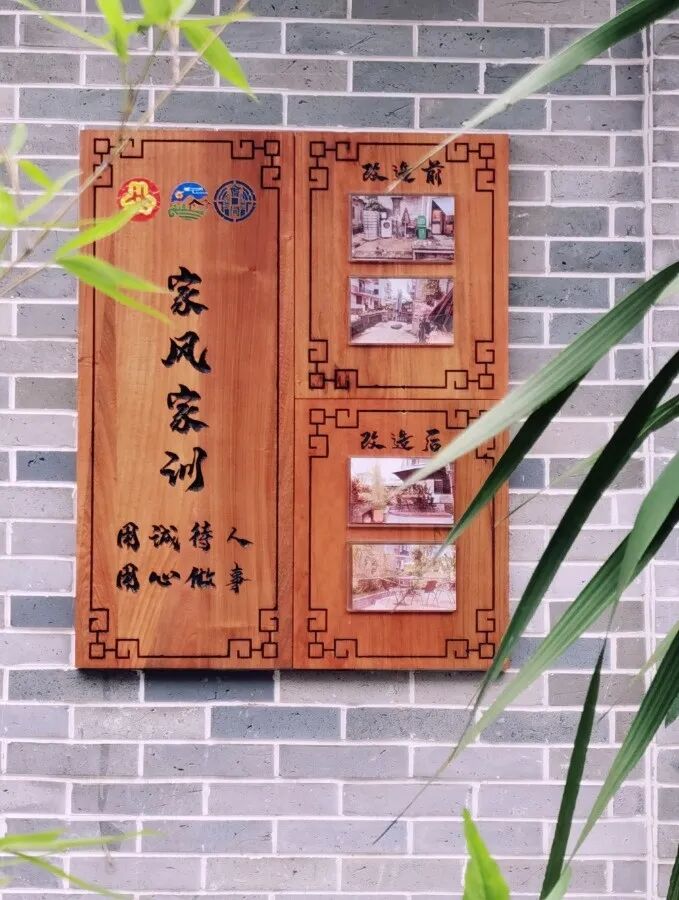 家风家训
用诚待人
用心做事
改造前
改造后